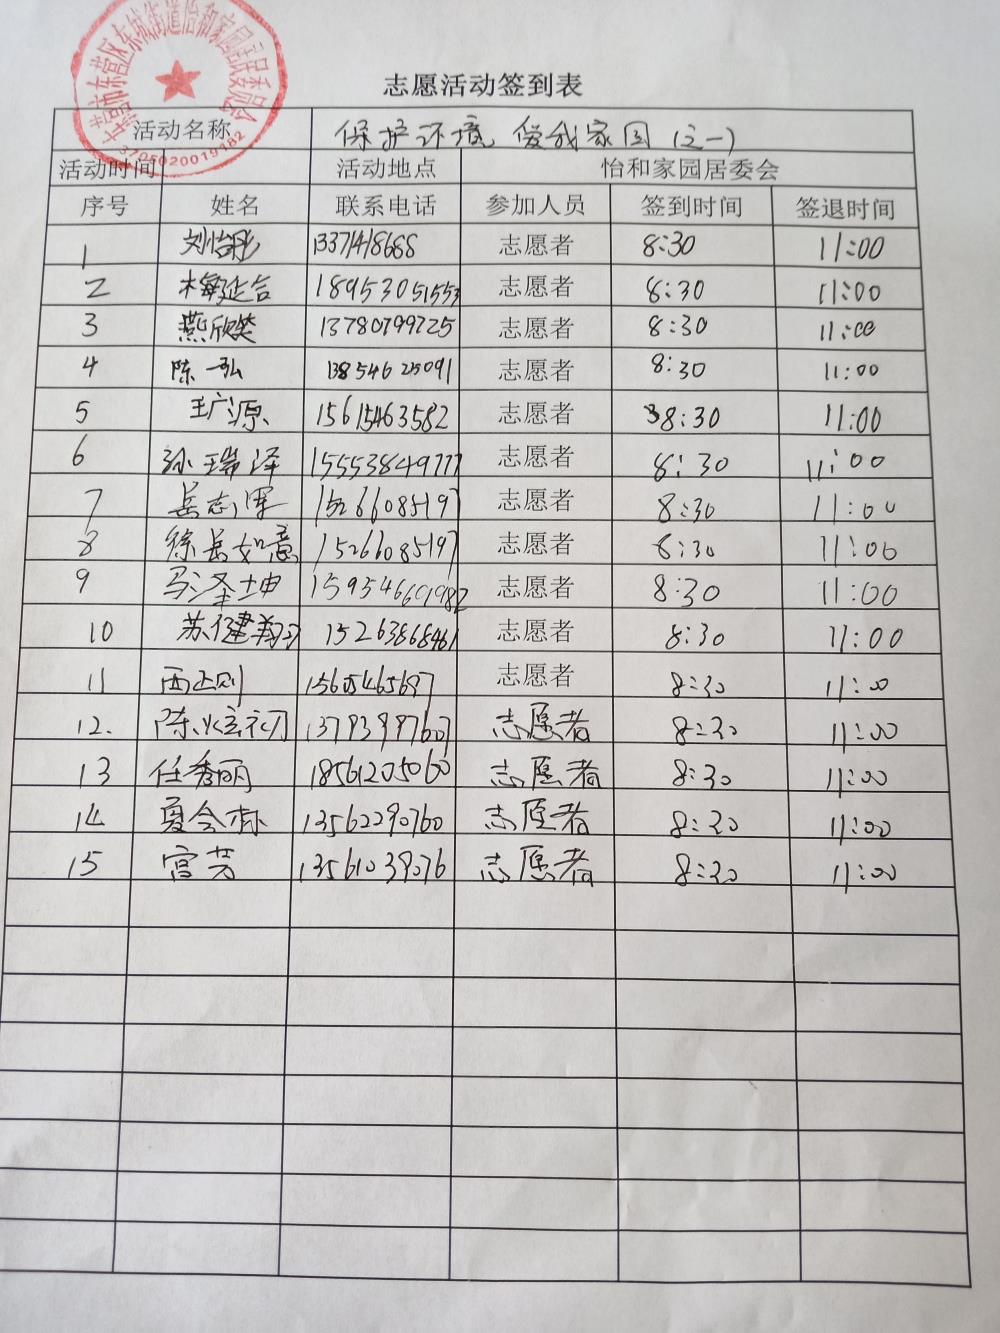 东营市东营区东城街道怡和家园居民委员会
3705020019182
志愿活动签到表
活动名称 保护环境,爱我家园(之一)
活动时间 活动地点 怡和家园居委会
序号 姓名 联系电话 参加人员 签到时间 签退时间
1 刘怡彤 13371418688 志愿者 8:30 11:00
2 18953051553 志愿者 8:30 11:00
3 燕欣笑 13780799225 志愿者 8:30 11:00
4 陈一弘 13854625091 志愿者 8:30 11:00
5 王广源 15615463582 志愿者 8:30 11:00
6 孙瑞泽 15553849777 志愿者 8:30 11:00
7 岳志军 15266085197 志愿者 8:30 11:00
8 徐岳如意 15266085197 志愿者 8:30 11:00
9 马泽坤 15954660982 志愿者 8:30 11:00
10 苏健翔 15263868461 志愿者 8:30 11:00
11 西正则 15605465697 志愿者 8:30 11:00
12. 陈炫初 13793997607 志愿者 8:30 11:00
13 任秀丽 18561205060 志愿者 8:30 11:00
14 夏会林 13562290760 志愿者 8:30 11:00
15 宫芳 13561039076 志愿者 8:30 11:00